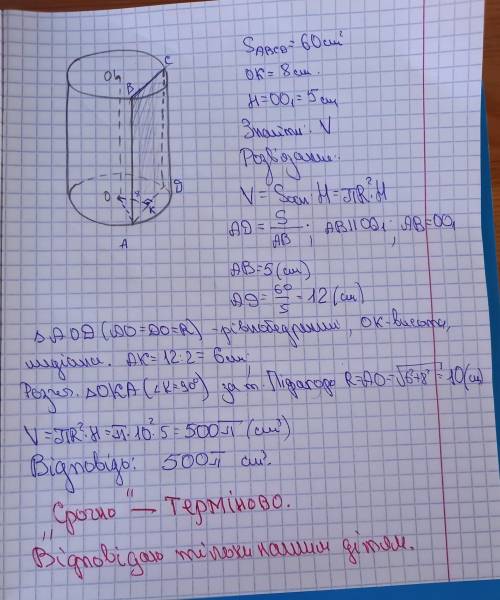 S ABCD = 60 см²
OK = 8 см.
H = OO₁ = 5 см
Знайти: V
Розв'язання:
V = Sосн · H = πR²·H
AD = S/AB ; AB || OO₁ ; AB = OO₁
AB = 5 (см)
AD = 60/5 = 12 (см)
△ AOD (AO = DO = R) - рівнобедрений, OK - висота,
медіана. AK = 12 : 2 = 6 см;
Розгл. △OKA (∠K = 90°) за т. Піфагора R = AO = √6²+8² = 10 (см)
V = πR²·H = π·10²·5 = 500π (см³)
Відповідь: 500π см³.
"Срочно" — терміново.
Відповідаю тільки нашим дітям.
O₁
C
B
O
D
K
A